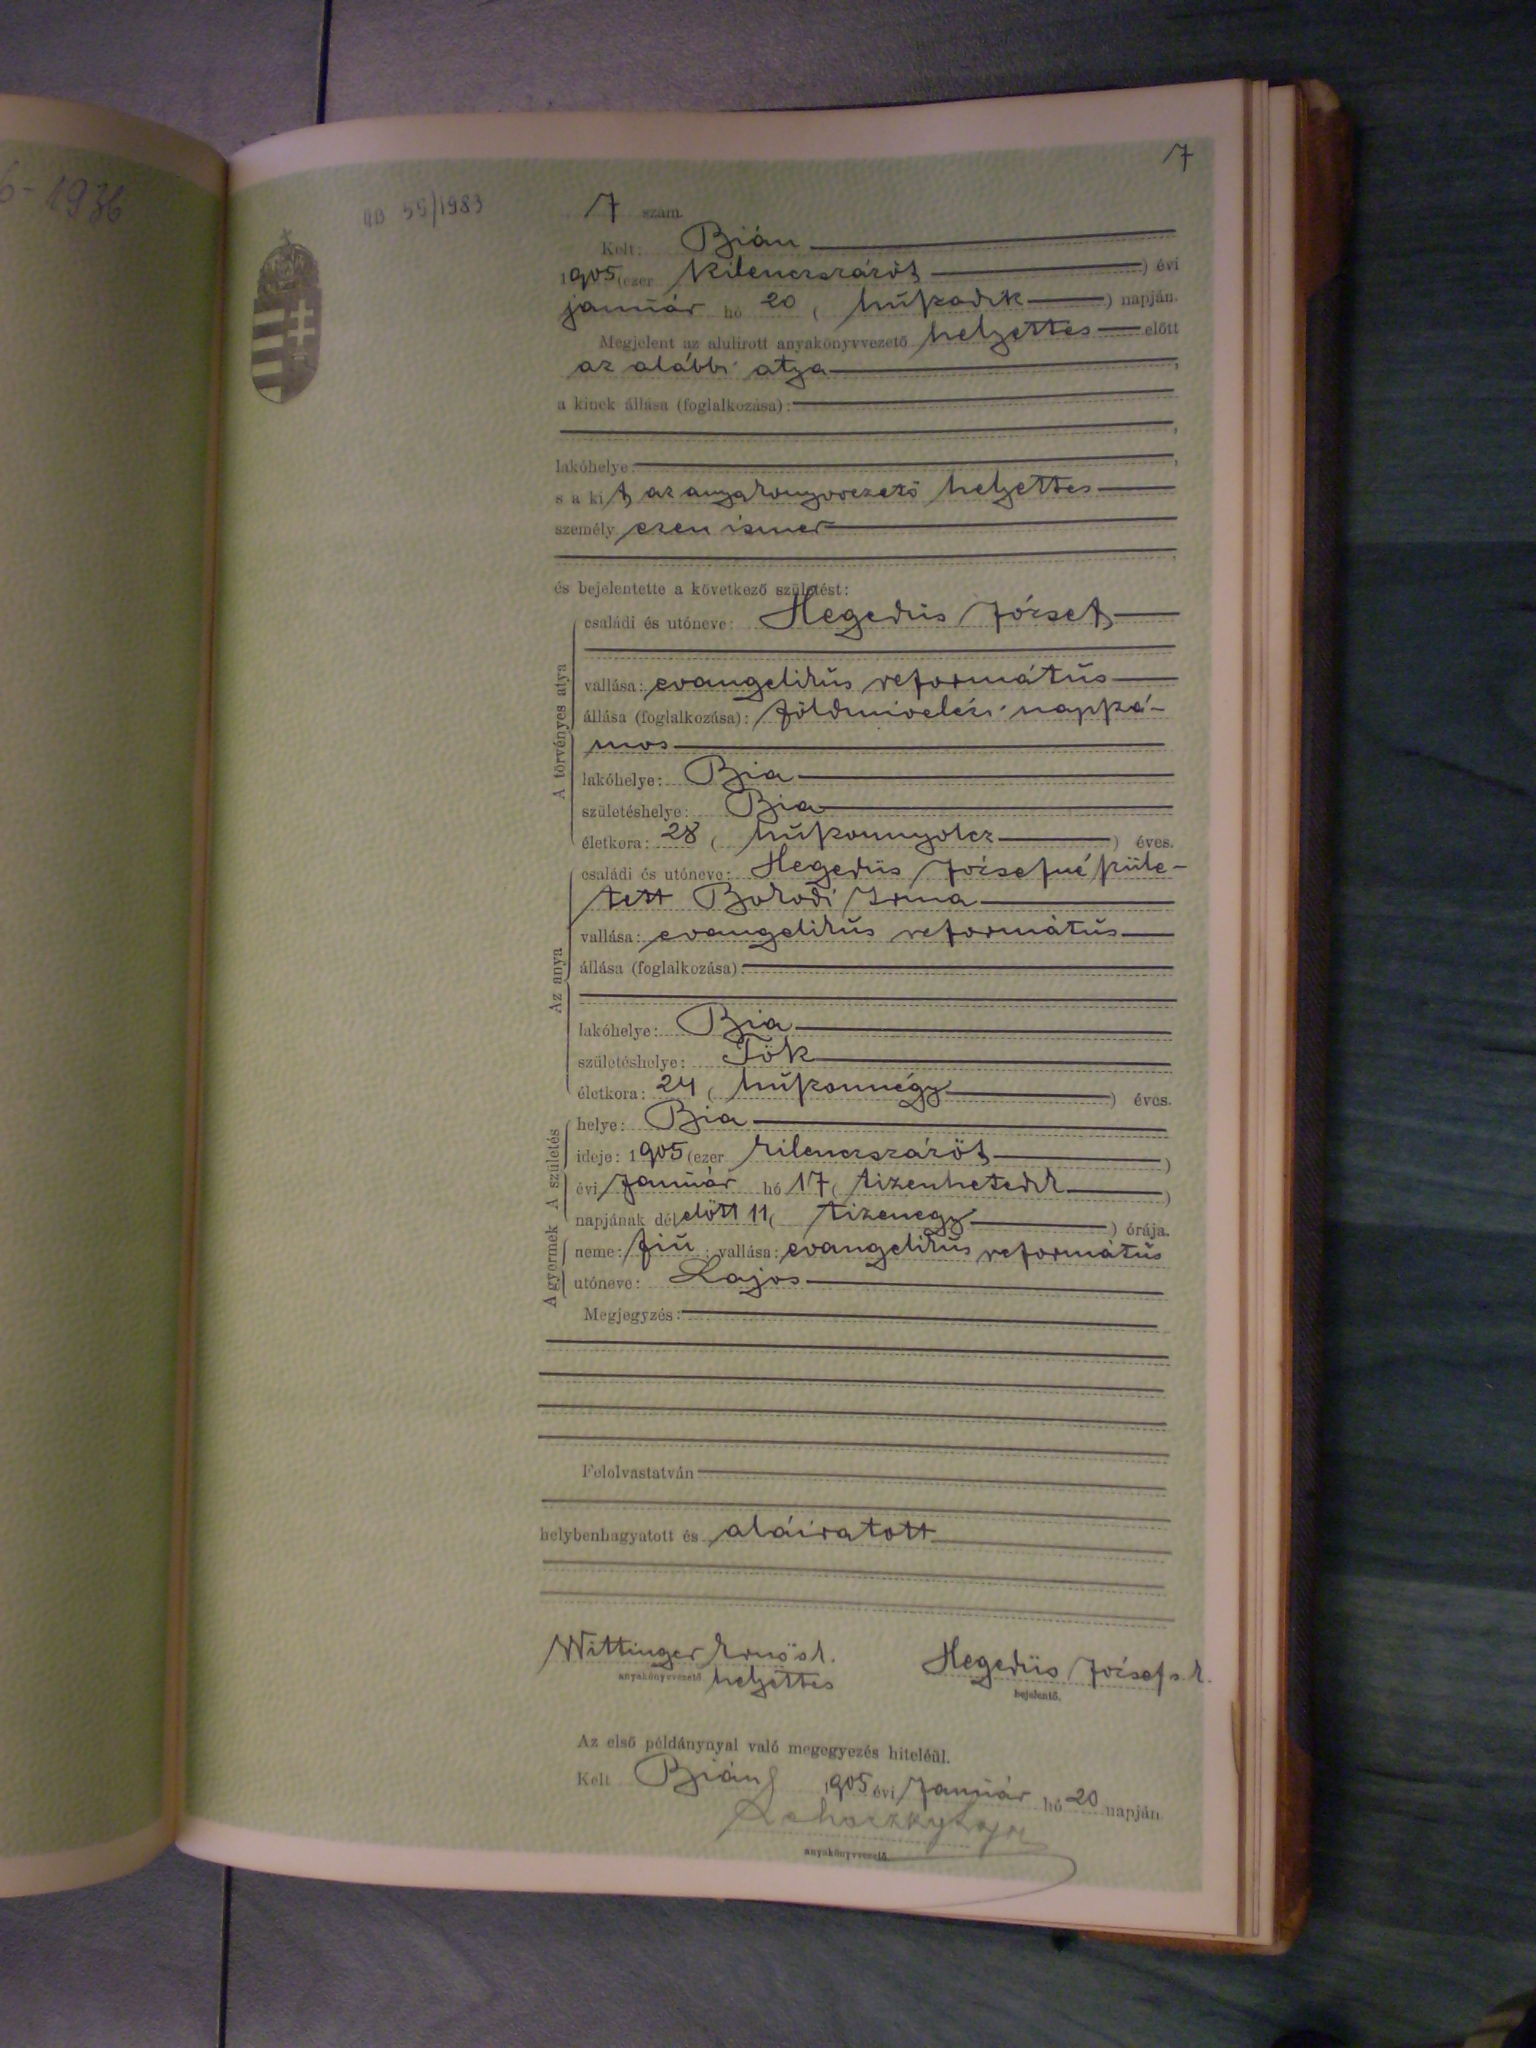 6-1936
7
55/1983
7 szám.
Kelt: Bián
1905 (ezer kilencszázöt ) évi
január hó 20 ( húszadik ) napján.
Megjelent az alulirott anyakönyvvezető helyettes előtt
az alábbi atya ,
a kinek állása (foglalkozása):
,
lakóhelye: ,
s a kit az anyakönyvvezető helyettes
személyesen ismer
,
és bejelentette a következő születést:
A törvényes atya
családi és utóneve: Hegedüs József
vallása: evangelikús reformátús
állása (foglalkozása): földmivelési napszá-
mos
lakóhelye: Bia
születéshelye: Bia
életkora: 28 ( húszonnyolcz ) éves.
Az anya
családi és utóneve: Hegedüs Józsefné szüle-
tett Bokodi Irma
vallása: evangelikús reformátús
állása (foglalkozása):
lakóhelye: Bia
születéshelye: Tök
életkora: 24 ( húszonnégy ) éves.
A gyermek A születés
helye: Bia
ideje: 1905 (ezer kilencszázöt )
évi január hó 17 ( tizenhetedik )
napjának délelőtt 11 ( tizenegy ) órája.
neme: fiú ; vallása: evangelikús reformátús
utóneve: Lajos
Megjegyzés:
Felolvastatván
helybenhagyatott és aláiratott
Wittinger Ernő s. k.
anyakönyvvezető helyettes
Hegedüs József s. k.
bejelentő.
Az első példánynyal való megegyezés hiteléül.
Kelt Bián, 1905 évi január hó 20 napján.
Lehoczky Lajos
anyakönyvvezető.